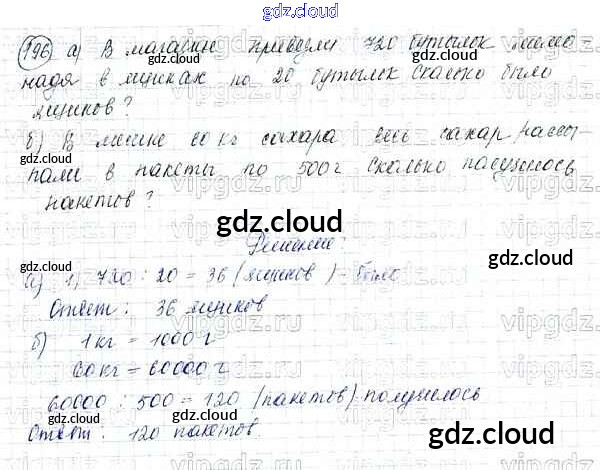 gdz.cloud
196 а) В магазин привезли 720 бутылок лимо-
надя в ящиках по 20 бутылок сколько было
ящиков?
б) В мешке 60 кг сахара весь сахар рассы-
пали в пакеты по 500 г сколько получилось
пакетов?
gdz.cloud
Решение:
а) 1) 720 : 20 = 36 (ящиков) - было
Ответ: 36 ящиков
б) 1 кг = 1000 г
60 кг = 60000 г
60000 : 500 = 120 (пакетов) - получилось
Ответ: 120 пакетов.
gdz.cloud